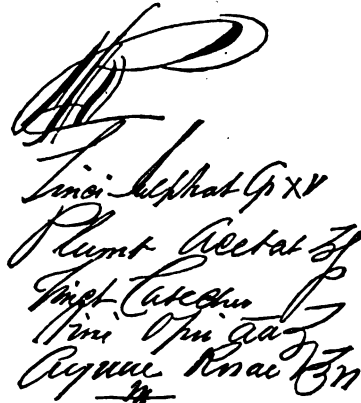 ℞
Zinci Sulphat Gr XV
Plumb Acetat ʒſ
Tinct Catechu
Vini Opii āā ʒ
Aquae Rosae ℥vi
M